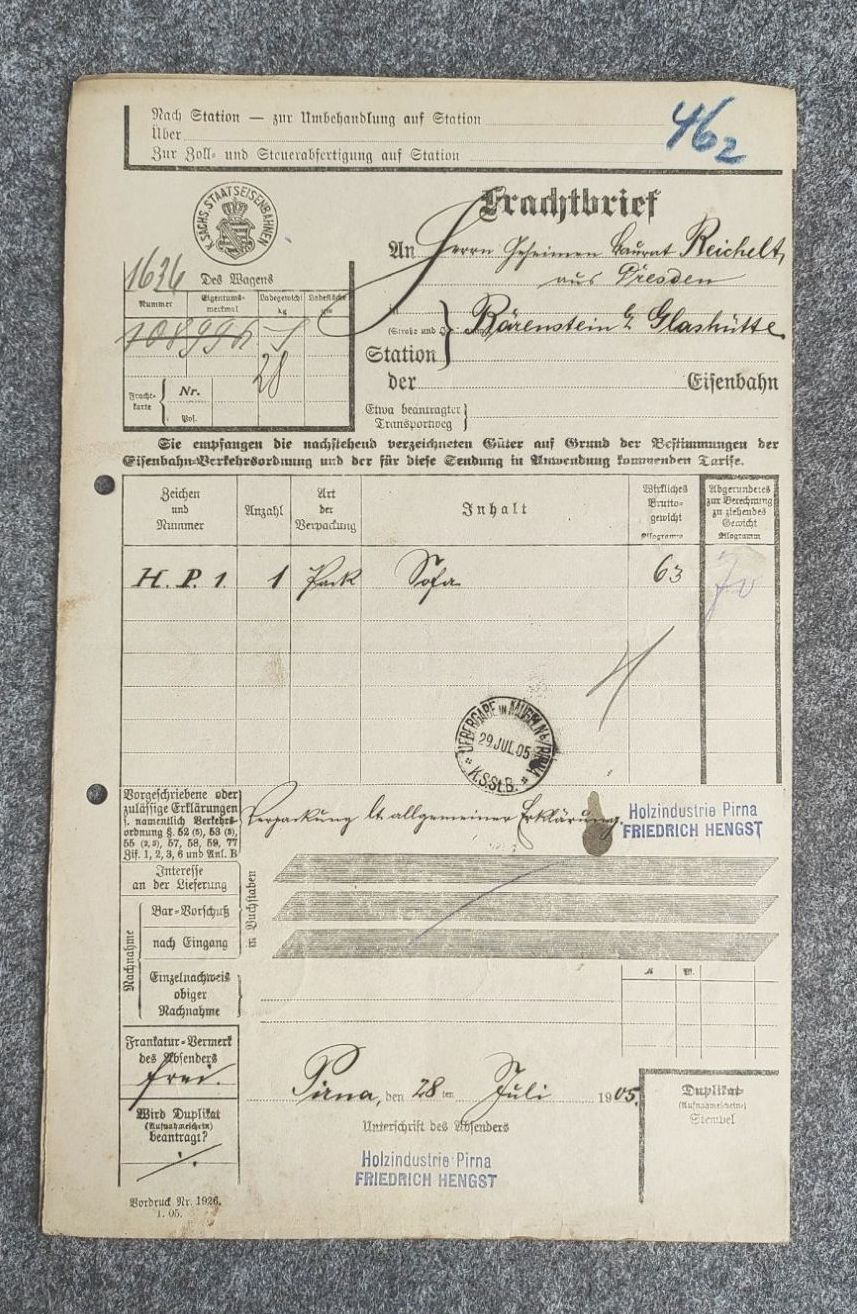 Nach Station — zur Umbehandlung auf Station
Über
Zur Zoll- und Steuerabfertigung auf Station
46 2
K. SÄCHS. STAATSEISENBAHNEN
Frachtbrief
An Herrn Geheimen Baurat Reichelt,
aus Dresden
in Bärenstein b/ Glashütte.
(Straße und
Station
der Eisenbahn
Etwa beantragter
Transportweg
1636 Des Wagens
Nummer Eigentums-merkmal Ladegewicht kg Ladefläche qm
28
Fracht-karte Nr.
Pos.
Sie empfangen die nachstehend verzeichneten Güter auf Grund der Bestimmungen der
Eisenbahn-Verkehrsordnung und der für diese Sendung in Anwendung kommenden Tarife.
Zeichen und Nummer Anzahl Art der Verpackung Inhalt Wirkliches Brutto-gewicht Kilogramm Abgerundetes zur Berechnung zu ziehendes Gewicht Kilogramm
H. P. 1. 1 Pack Sofa 63 70
UEBERGABE in MÜGELN b/PIRNA
29.JUL.05
* K.S.St.B. *
Vorgeschriebene oder
zulässige Erklärungen
s. namentlich Verkehrs-
ordnung §. 52 (5), 53 (3),
55 (2, 3), 57, 58, 59, 77
Zif. 1, 2, 3, 6 und Anl. B
Verpackung lt. allgemeiner Erklärung.
Holzindustrie Pirna
FRIEDRICH HENGST
Interesse
an der Lieferung
in Buchstaben
Nachnahme
Bar-Vorschuß
nach Eingang
Einzelnachweis
obiger
Nachnahme
M Pf.
Frankatur-Vermerk
des Absenders
frei.
Pirna, den 28 ten Juli 1905.
Wird Duplikat
(Aufnahmeschein)
beantragt?
Unterschrift des Absenders
Holzindustrie Pirna
FRIEDRICH HENGST
Duplikat-
(Aufnahmeschein)
Stempel
Vordruck Nr. 1926.
1. 05.